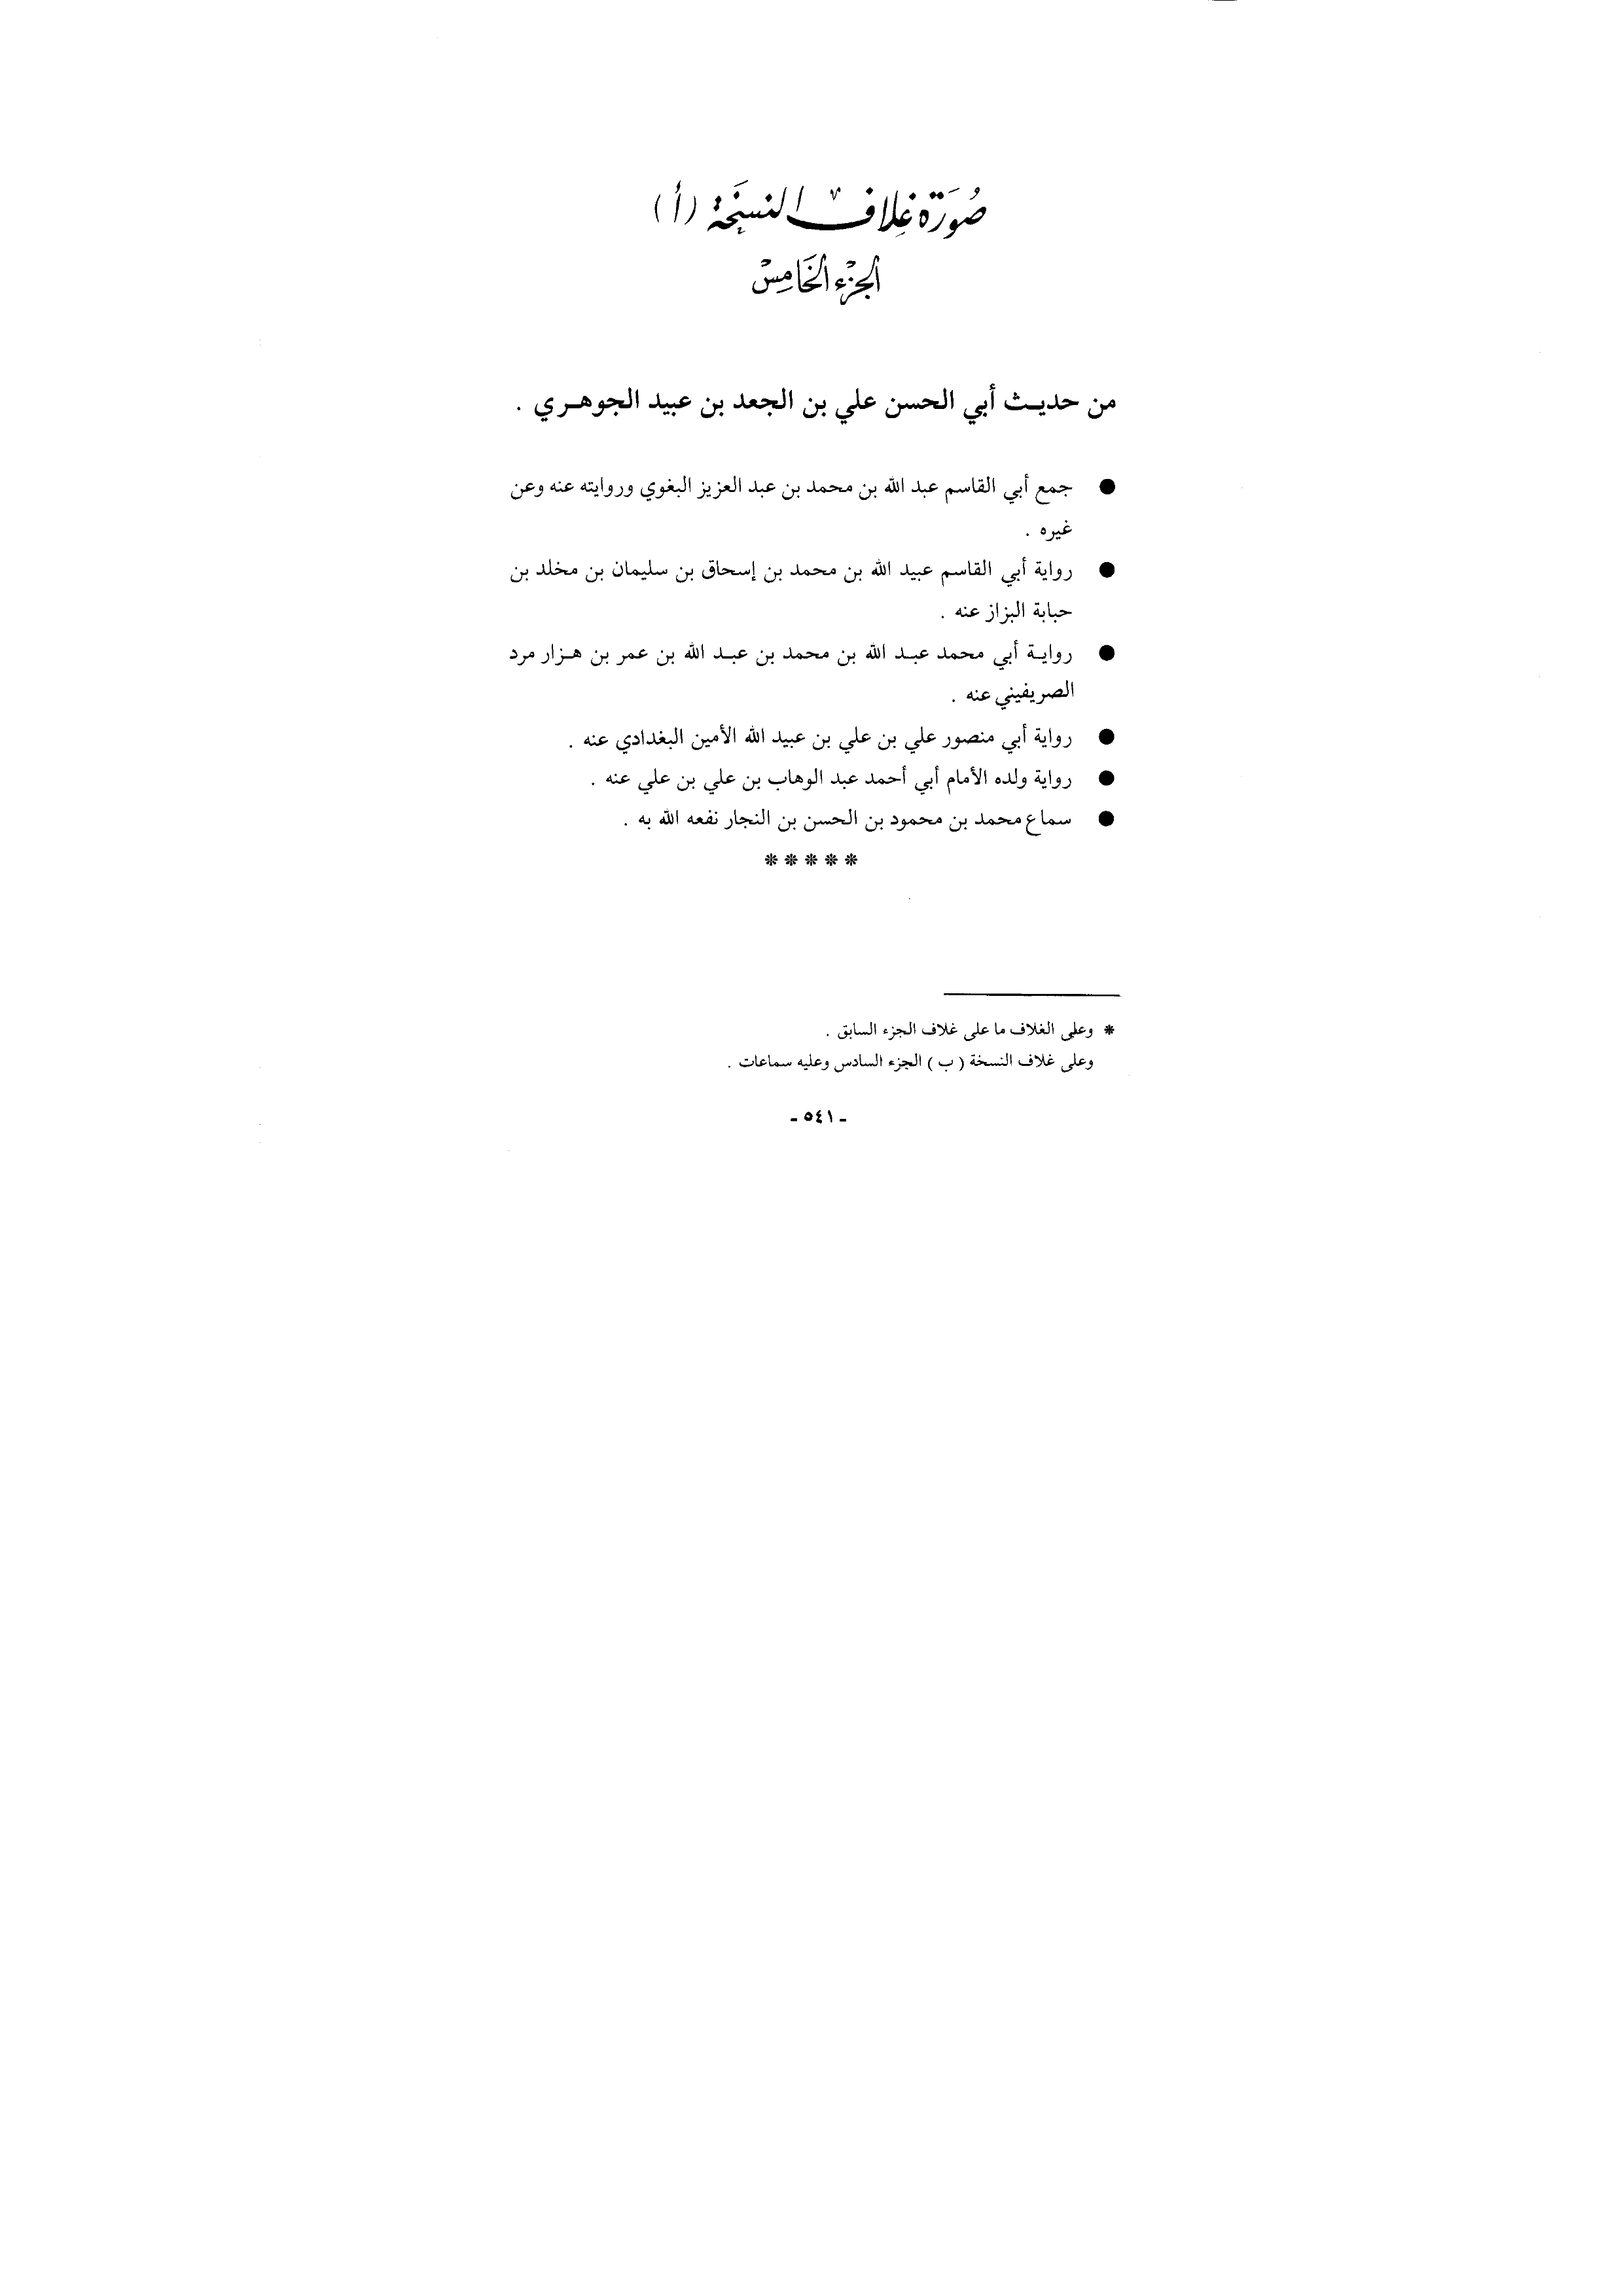 صُورَة غِلاف النسخَة (أ)
الجزء الخَامِس
من حديث أبي الحسن علي بن الجعد بن عبيد الجوهري .
● جمع أبي القاسم عبد الله بن محمد بن عبد العزيز البغوي وروايته عنه وعن
غيره .
● رواية أبي القاسم عبيد الله بن محمد بن إسحاق بن سليمان بن مخلد بن
حبابة البزاز عنه .
● روايـة أبي محمد عبـد الله بن محمد بن عبـد الله بن عمر بن هـزار مرد
الصريفيني عنه .
● رواية أبي منصور علي بن علي بن عبيد الله الأمين البغدادي عنه .
● رواية ولده الأمام أبي أحمد عبد الوهاب بن علي بن علي عنه .
● سماع محمد بن محمود بن الحسن بن النجار نفعه الله به .
* * * * *
* وعلى الغلاف ما على غلاف الجزء السابق .
وعلى غلاف النسخة ( ب ) الجزء السادس وعليه سماعات .
- ٥٤١ -